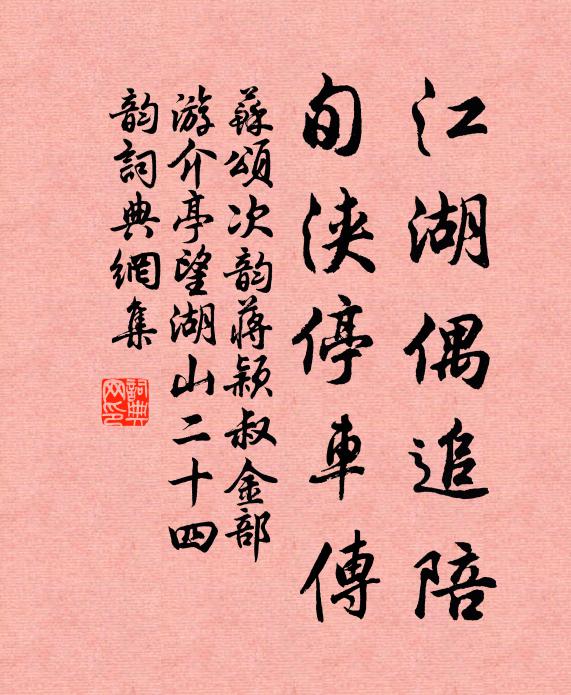 江湖偶追陪
旬浹停車傳
蘇頌次韵蔣穎叔金部
游介亭望湖山二十四
韵詞典網集
詞典
网印